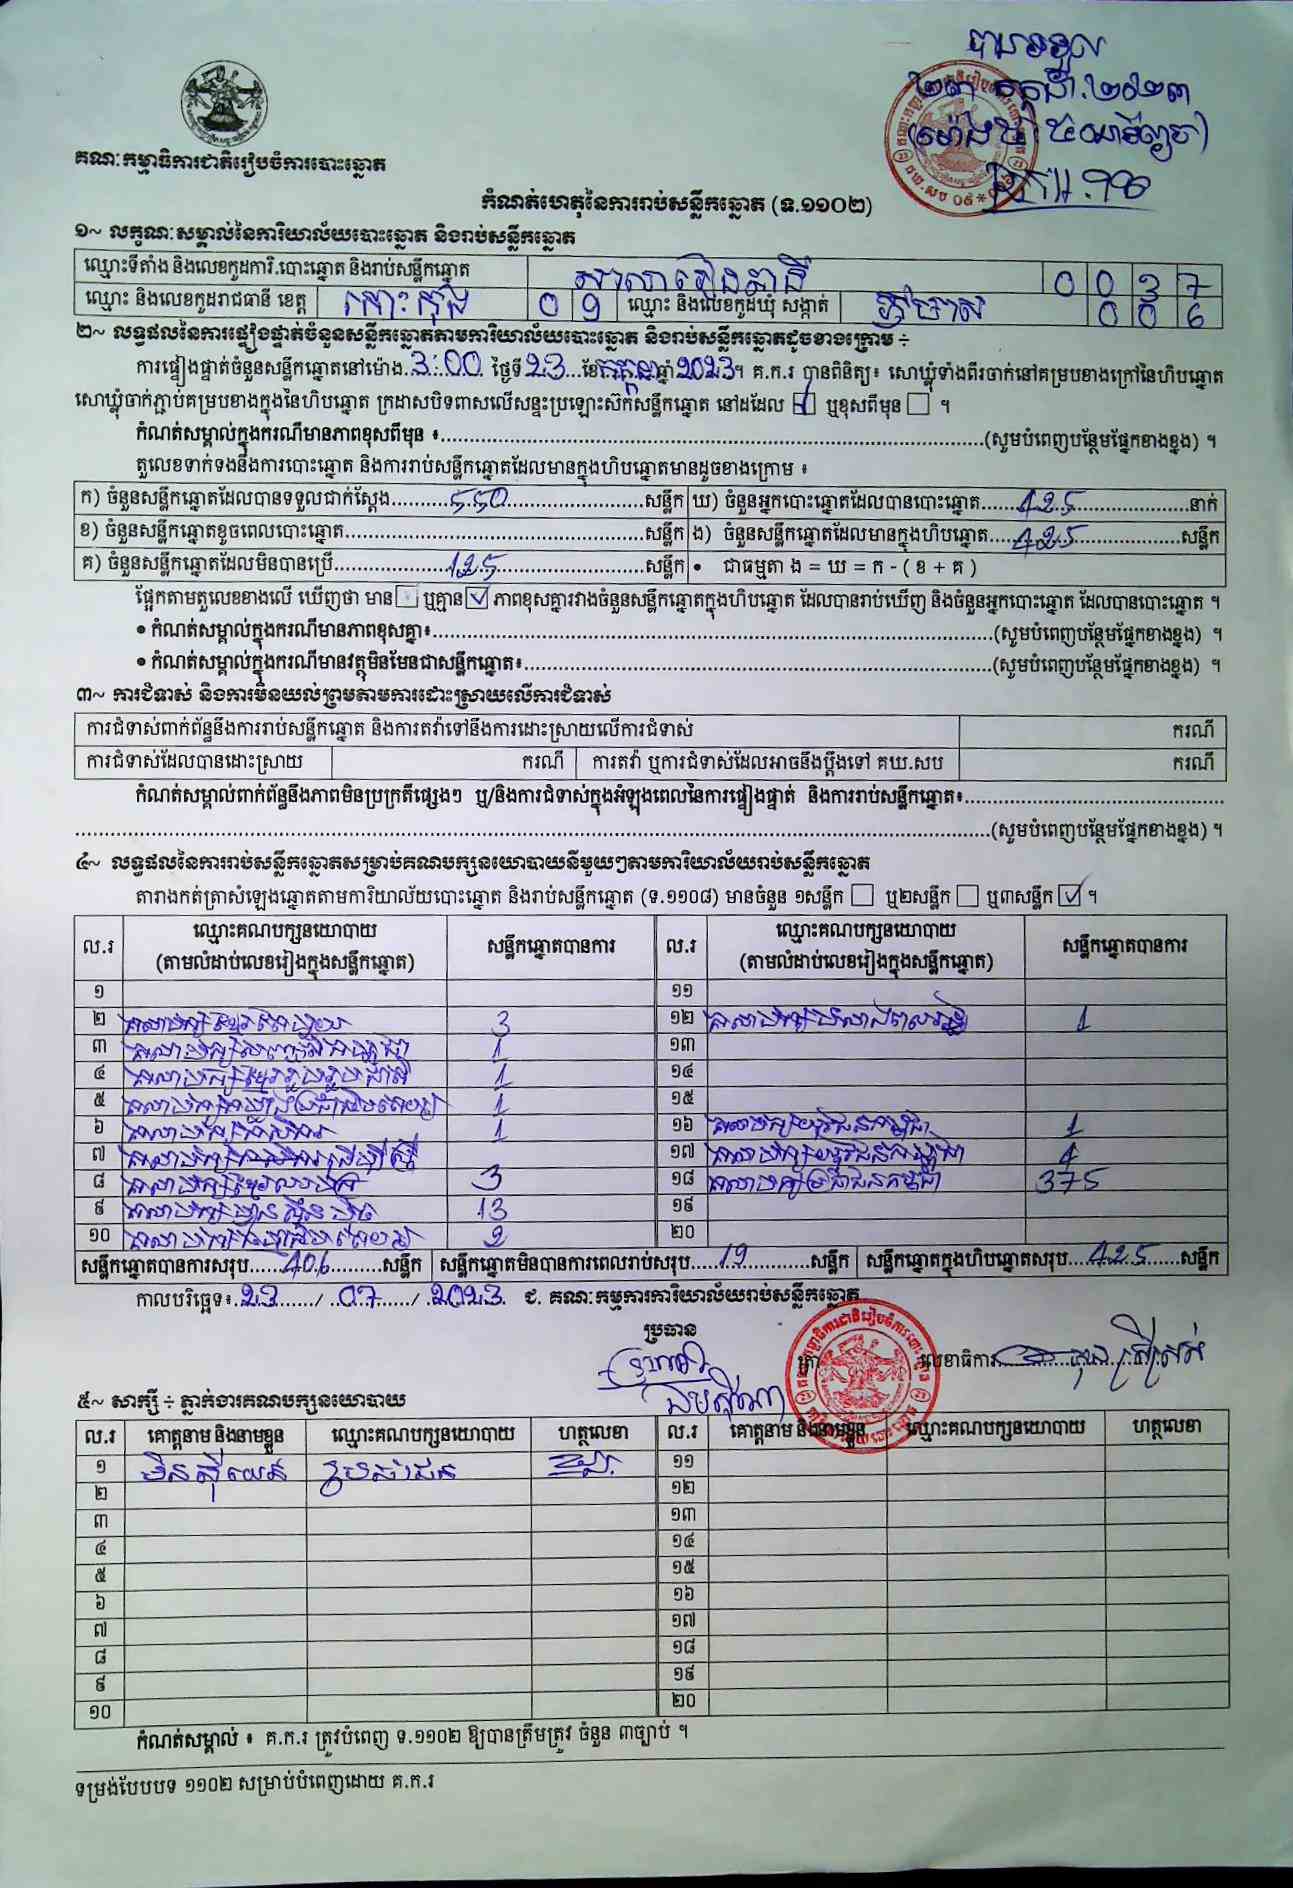 បានទទួល
គណៈកម្មាធិការជាតិរៀបចំការបោះឆ្នោត
កំណត់ហេតុនៃការរាប់សន្លឹកឆ្នោត (ទ.១១០២)
១~ លក្ខណៈសម្គាល់នៃការិយាល័យបោះឆ្នោត និងរាប់សន្លឹកឆ្នោត
ឈ្មោះទីតាំង និងលេខកូដការិ.បោះឆ្នោត និងរាប់សន្លឹកឆ្នោត 0 0 3 7
ឈ្មោះ និងលេខកូដរាជធានី ខេត្ត កោះកុង 0 9 ឈ្មោះ និងលេខកូដឃុំ សង្កាត់ 0 0 6
២~ លទ្ធផលនៃការផ្ទៀងផ្ទាត់ចំនួនសន្លឹកឆ្នោតតាមការិយាល័យបោះឆ្នោត និងរាប់សន្លឹកឆ្នោតដូចខាងក្រោម ÷
ការផ្ទៀងផ្ទាត់ចំនួនសន្លឹកឆ្នោតនៅម៉ោង 3:00 ថ្ងៃទី 23 ខែ កក្កដា ឆ្នាំ 2023។ គ.ក.រ បានពិនិត្យ៖ សោឃ្លុំទាំងពីរចាក់នៅគម្របខាងក្រៅនៃហិបឆ្នោត
សោឃ្លុំចាក់ភ្ជាប់គម្របខាងក្នុងនៃហិបឆ្នោត ក្រដាសបិទពាសលើសន្ទះប្រឡោះស៊កសន្លឹកឆ្នោត នៅដដែល ☑ ឬខុសពីមុន ☐ ។
កំណត់សម្គាល់ក្នុងករណីមានភាពខុសពីមុន ៖..........(សូមបំពេញបន្ថែមផ្នែកខាងខ្នង) ។
តួលេខទាក់ទងនឹងការបោះឆ្នោត និងការរាប់សន្លឹកឆ្នោតដែលមានក្នុងហិបឆ្នោតមានដូចខាងក្រោម ៖
ក) ចំនួនសន្លឹកឆ្នោតដែលបានទទួលជាក់ស្តែង 550 សន្លឹក ឃ) ចំនួនអ្នកបោះឆ្នោតដែលបានបោះឆ្នោត 425 នាក់
ខ) ចំនួនសន្លឹកឆ្នោតខូចពេលបោះឆ្នោត..........សន្លឹក ង) ចំនួនសន្លឹកឆ្នោតដែលមានក្នុងហិបឆ្នោត 425 សន្លឹក
គ) ចំនួនសន្លឹកឆ្នោតដែលមិនបានប្រើ 125 សន្លឹក • ជាធម្មតា ង = ឃ = ក - ( ខ + គ )
ផ្អែកតាមតួលេខខាងលើ ឃើញថា មាន ☐ ឬគ្មាន ☑ ភាពខុសគ្នារវាងចំនួនសន្លឹកឆ្នោតក្នុងហិបឆ្នោត ដែលបានរាប់ឃើញ និងចំនួនអ្នកបោះឆ្នោត ដែលបានបោះឆ្នោត ។
• កំណត់សម្គាល់ក្នុងករណីមានភាពខុសគ្នា៖..........(សូមបំពេញបន្ថែមផ្នែកខាងខ្នង) ។
• កំណត់សម្គាល់ក្នុងករណីមានវត្ថុមិនមែនជាសន្លឹកឆ្នោត៖..........(សូមបំពេញបន្ថែមផ្នែកខាងខ្នង) ។
៣~ ការជំទាស់ និងការមិនយល់ព្រមតាមការដោះស្រាយលើការជំទាស់
ការជំទាស់ពាក់ព័ន្ធនឹងការរាប់សន្លឹកឆ្នោត និងការតវ៉ាទៅនឹងការដោះស្រាយលើការជំទាស់ ករណី
ការជំទាស់ដែលបានដោះស្រាយ ករណី ការតវ៉ា ឬការជំទាស់ដែលអាចនឹងប្តឹងទៅ គឃ.សប ករណី
កំណត់សម្គាល់ពាក់ព័ន្ធនឹងភាពមិនប្រក្រតីផ្សេងៗ ឬ/និងការជំទាស់ក្នុងអំឡុងពេលនៃការផ្ទៀងផ្ទាត់ និងការរាប់សន្លឹកឆ្នោត៖..........
..........(សូមបំពេញបន្ថែមផ្នែកខាងខ្នង) ។
៤~ លទ្ធផលនៃការរាប់សន្លឹកឆ្នោតសម្រាប់គណបក្សនយោបាយនីមួយៗតាមការិយាល័យរាប់សន្លឹកឆ្នោត
តារាងកត់ត្រាសំឡេងឆ្នោតតាមការិយាល័យបោះឆ្នោត និងរាប់សន្លឹកឆ្នោត (ទ.១១០៨) មានចំនួន ១សន្លឹក ☐ ឬ២សន្លឹក ☐ ឬ៣សន្លឹក ☑ ។
ល.រ ឈ្មោះគណបក្សនយោបាយ (តាមលំដាប់លេខរៀងក្នុងសន្លឹកឆ្នោត) សន្លឹកឆ្នោតបានការ ល.រ ឈ្មោះគណបក្សនយោបាយ (តាមលំដាប់លេខរៀងក្នុងសន្លឹកឆ្នោត) សន្លឹកឆ្នោតបានការ
១ ១១
២ 3 ១២ 1
៣ 1 ១៣
៤ 1 ១៤
៥ 1 ១៥
៦ 1 ១៦ 1
៧ ១៧ 4
៨ 3 ១៨ គណបក្សប្រជាជនកម្ពុជា 375
៩ 13 ១៩
១០ 2 ២០
សន្លឹកឆ្នោតបានការសរុប 406 សន្លឹក សន្លឹកឆ្នោតមិនបានការពេលរាប់សរុប 19 សន្លឹក សន្លឹកឆ្នោតក្នុងហិបឆ្នោតសរុប 425 សន្លឹក
កាលបរិច្ឆេទ៖ 23 / 07 / 2023 ជ. គណៈកម្មការការិយាល័យរាប់សន្លឹកឆ្នោត
ប្រធាន
លេខាធិការ
៥~ សាក្សី ÷ ភ្នាក់ងារគណបក្សនយោបាយ
ល.រ គោត្តនាម និងនាមខ្លួន ឈ្មោះគណបក្សនយោបាយ ហត្ថលេខា ល.រ គោត្តនាម និងនាមខ្លួន ឈ្មោះគណបក្សនយោបាយ ហត្ថលេខា
១ ១១
២ ១២
៣ ១៣
៤ ១៤
៥ ១៥
៦ ១៦
៧ ១៧
៨ ១៨
៩ ១៩
១០ ២០
កំណត់សម្គាល់ ៖ គ.ក.រ ត្រូវបំពេញ ទ.១១០២ ឱ្យបានត្រឹមត្រូវ ចំនួន ៣ច្បាប់ ។
ទម្រង់បែបបទ ១១០២ សម្រាប់បំពេញដោយ គ.ក.រ